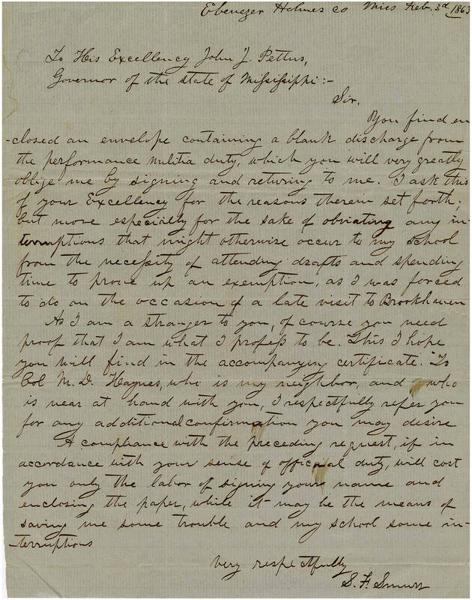 Ebenezer Holmes co Miss Feb. 3d 1863
To His Excellency John J. Pettus,
Governor of the state of Mississippi:-
Sir,
You find en
-closed an envelope containing a blank discharge from
the performance militia duty, which you will very greatly
oblige me by signing and returning to me. I ask this
of your Excellency for the reasons therein set forth;
but more especially for the sake of obviating any in-
terruptions that might otherwise occur to my school
from the necessity of attending drafts and spending
time to prove up an exemption, as I was forced
to do on the occasion of a late visit to Brookhaven
As I am a stranger to you, of course you need
proof that I am what I profess to be. This I hope
you will find in the accompanying certificate. To
Col M. D. Haynes, who is my neighbor, and who
is near at hand with you, I respectfully refer you
for any additional confirmation you may desire
A compliance with the preceding request, if in
accordance with your sense of official duty, will cost
you only the labor of signing your name and
enclosing the paper, while it may be the means of
saving me some trouble and my school some in-
-terruptions
Very respectfully
S. F.